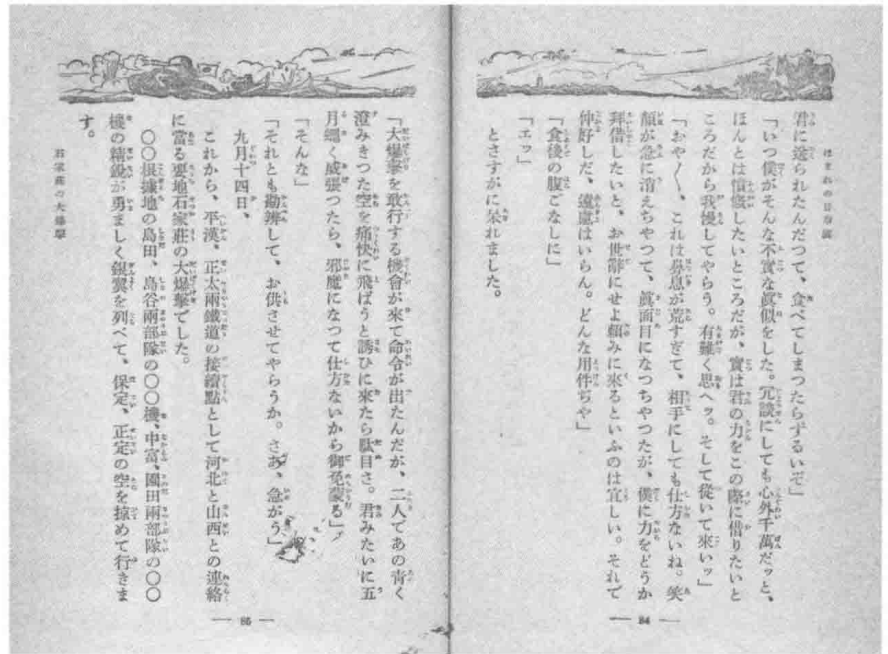 ほまれの日章旗
君に送られたんだつて、食べてしまつたらずるいぞ」
「いつ僕がそんな不實な眞似をした。冗談にしても心外千萬だッと、
ほんとは憤慨したいところだが、實は君の力をこの際に借りたいと
ころだから我慢してやらう。有難く思ヘッ。そして從いて來いッ」
「おや〳〵、これは鼻息が荒すぎて、相手にしても仕方ないね。笑
顏が急に消えちやつて、眞面目になつちやつたが、僕に力をどうか
拜借したいと、お世辭にせよ頼みに來るといふのは宜しい。それで
仲好しだ、遠慮はいらん。どんな用件ぢや」
「食後の腹ごなしに」
「エッ」
とさすがに呆れました。
— 84 —
「大爆擊を敢行する機會が來て命令が出たんだが、二人であの靑く
澄みきつた空を痛快に飛ばうと誘ひに來たら駄目さ。君みたいに五
月蠅く威張つたら、邪魔になつて仕方ないから御免蒙る」
「そんな」
「それとも勘辨して、お供させてやらうか。さあ、急がう」
九月十四日、
これから、平漢、正太兩鐵道の接續點として河北と山西との連絡
に當る要地石家莊の大爆擊でした。
〇〇根據地の島田、島谷兩部隊の〇〇機、中富、園田兩部隊の〇〇
機の精銳が勇ましく銀翼を列べて、保定、正定の空を掠めて行きま
す。
石家莊の大爆擊
— 85 —